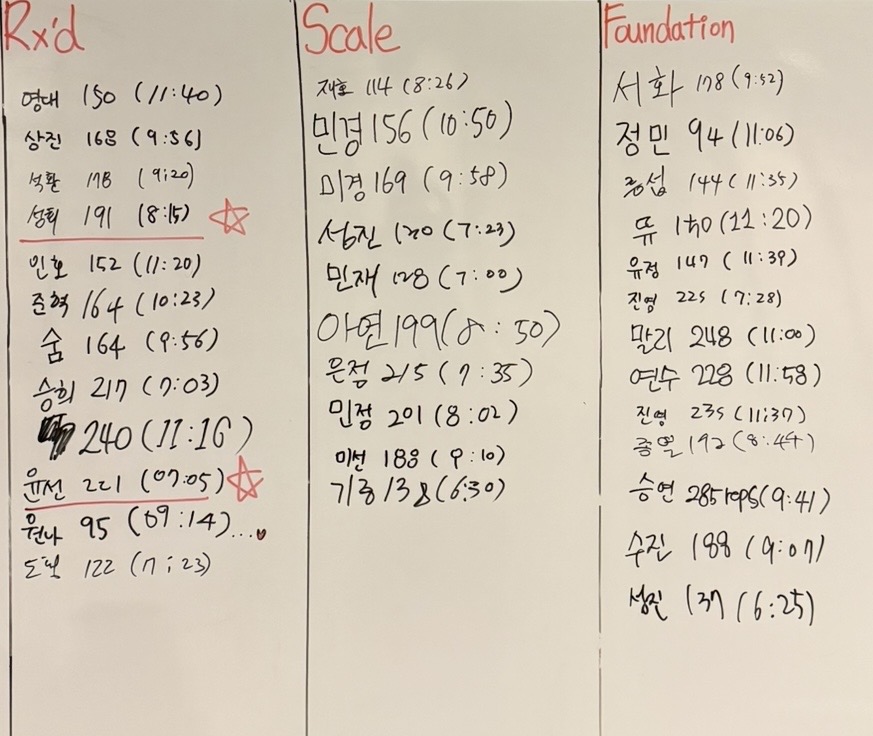 Rx'd
영대 150 (11:40)
상진 168 (9:56)
석환 178 (9:20)
성퇴 191 (8:15)
인호 152 (11:20)
준혁 164 (10:23)
숨 164 (9:56)
승희 217 (7:03)
240 (11:16)
윤선 221 (07:05)
원나 95 (09:14)...
122 (7:23)
Scale
재호 114 (8:26)
민경 156 (10:50)
미경 169 (9:58)
성진 120 (7:23)
민재 128 (7:00)
아연 199 (8:50)
은정 215 (7:35)
민정 201 (8:02)
미선 188 (9:10)
기홍 138 (6:30)
Foundation
서화 178 (9:52)
정민 94 (11:06)
144 (11:35)
뜌 150 (11:20)
유정 147 (11:39)
진영 225 (7:28)
말리 248 (11:00)
연수 228 (11:58)
진영 235 (11:37)
종열 192 (8:44)
승연 285 reps (9:41)
수진 188 (9:07)
성진 137 (6:25)